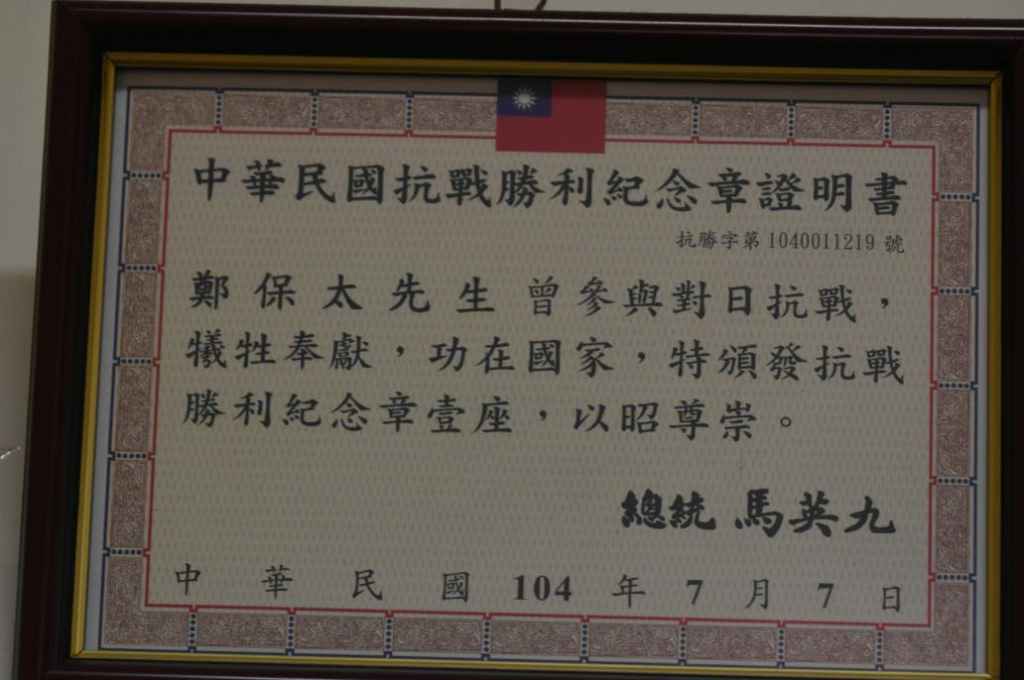 中華民國抗戰勝利紀念章證明書
抗勝字第1040011219號
鄭保太先生曾參與對日抗戰，
犧牲奉獻，功在國家，特頒發抗戰
勝利紀念章壹座，以昭尊崇。
總統 馬英九
中華民國104年7月7日